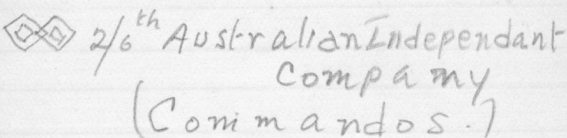 2/6th Australian Independant
Company
(Commandos.)